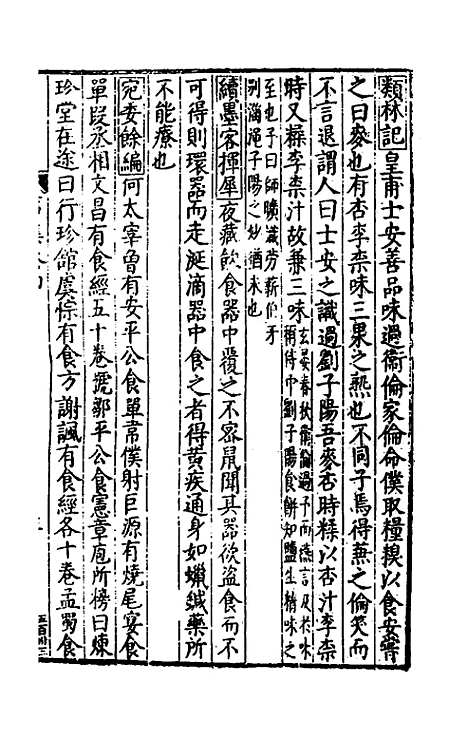 類林記皇甫士安善品味過衛倫家倫命僕取糧糗以食安嘗
之曰麥也有杏李柰味三果之熟也不同子焉得兼之倫笑而
不言退謂人曰士安之識過劉子陽吾麥杏時糅以杏汁李柰
時又糅李柰汁故兼三味玄晏春秋衛倫過予而論言及於味
稱侍中劉子陽食餅知鹽生精味之
至也予曰師曠識勞薪伯牙
別淄澠子陽之妙猶未也
續墨客揮犀夜藏飲食器中覆之不密鼠聞其器欲盜食而不
可得則環器而走涎滴器中食之者得黄疾通身如蠟緘藥所
不能療也
宛委餘編何太宰魯有安平公食單常僕射巨源有燒尾宴食
單段丞相文昌有食經五十卷號鄒平公食憲章庖所榜曰煉
珍堂在途曰行珍館虞悰有食方謝諷有食經各十卷孟蜀食
五百卅三